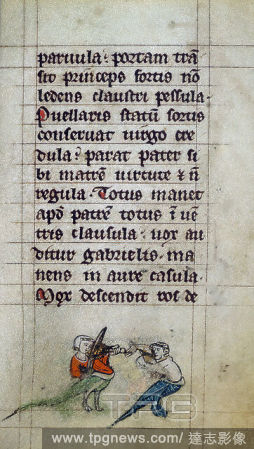 paruula· portam trā
sit princeps fortis nō
ledens claustri pessula·
Puellaris statū sortis
conseruat uirgo cre
dula· parat pater si
bi matrē uirtute ⁊ ñ
regula· Totus manet
apđ patrē totus ī uē
tris clausula· uox au
ditur gabrielis· ma
nens in aure casula·
Mox descendit ros de
TPG
www.tpgnews.com/ 達志影像